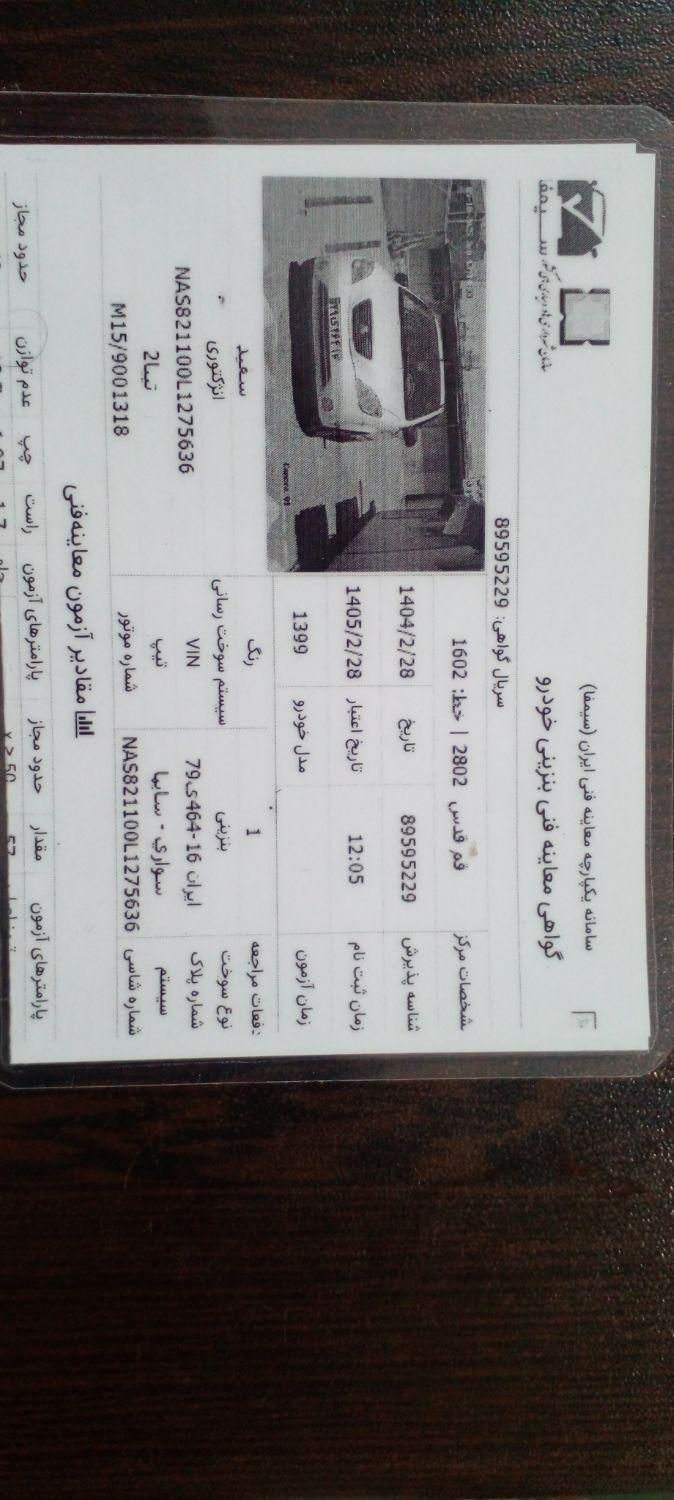 سامانه یکپارچه معاینه فنی ایران (سیمفا)
گواهی معاینه فنی بنزینی خودرو
سیمفا
سریال گواهی: 89595229
مشخصات مرکز قم قدس 2802 | خط: 1602
شناسه پذیرش 89595229 تاریخ 1404/2/28
زمان ثبت نام 12:05 تاریخ اعتبار 1405/2/28
زمان آزمون مدل خودرو 1399
دفعات مراجعه 1 رنگ سفید
نوع سوخت بنزینی سیستم سوخت رسانی انژکتوری
شماره پلاک ایران 16-464ی79 VIN NAS821100L1275636
سیستم سواری - سایپا تیپ تیبا2
شماره شاسی NAS821100L1275636 شماره موتور M15/9001318
مقادیر آزمون معاینه‌فنی
پارامترهای آزمون مقدار حدود مجاز پارامترهای آزمون راست چپ عدم توازن حدود مجاز
57